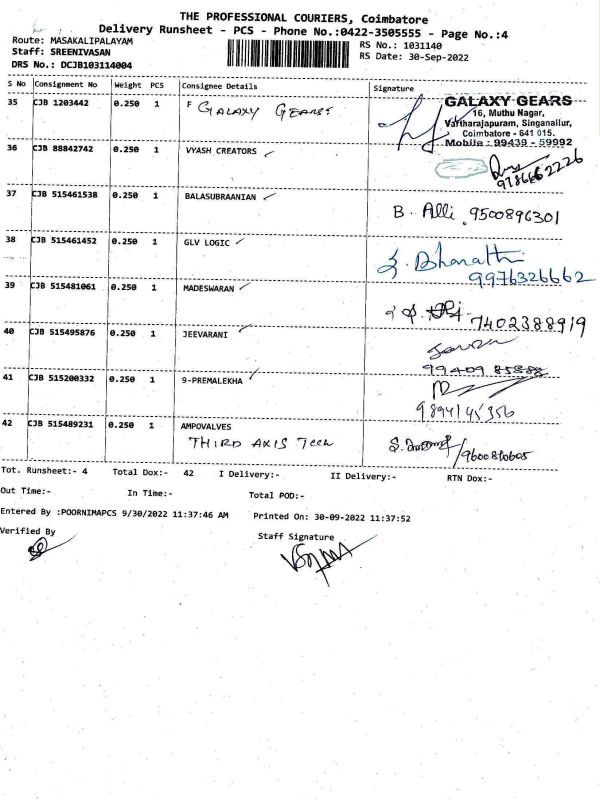 THE PROFESSIONAL COURIERS, Coimbatore
Delivery Runsheet - PCS - Phone No.:0422-3505555 - Page No.:4
Route: MASAKALIPALAYAM
Staff: SREENIVASAN
DRS No.: DCJB103114004
RS No.: 1031140
RS Date: 30-Sep-2022
S No Consignment No Weight PCS Consignee Details Signature
35 CJB 1203442 0.250 1 F GALAXY GEARS
GALAXY GEARS
16, Muthu Nagar,
Vartharajapuram, Singanallur,
Coimbatore - 641 015.
Mobile : 99439 - 59992
36 CJB 88842742 0.250 1 VYASH CREATORS
37 CJB 515461538 0.250 1 BALASUBRAANIAN B. Alli 9500896301
38 CJB 515461452 0.250 1 GLV LOGIC Bharathi
9976326662
39 CJB 515481061 0.250 1 MADESWARAN 7402388919
40 CJB 515495876 0.250 1 JEEVARANI
99409 85888
41 CJB 515200332 0.250 1 9-PREMALEKHA
9894145356
42 CJB 515489231 0.250 1 AMPOVALVES
THIRD AXIS Tech
Tot. Runsheet:- 4 Total Dox:- 42 I Delivery:- II Delivery:- RTN Dox:-
Out Time:- In Time:- Total POD:-
Entered By :POORNIMAPCS 9/30/2022 11:37:46 AM Printed On: 30-09-2022 11:37:52
Verified By
Staff Signature